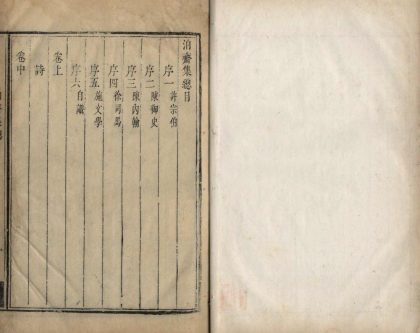 泊齋集總目
序一 許宗伯
序二 陳御史
序三 陳內翰
序四 徐司馬
序五 施文學
序六 自識
卷上
詩
卷中